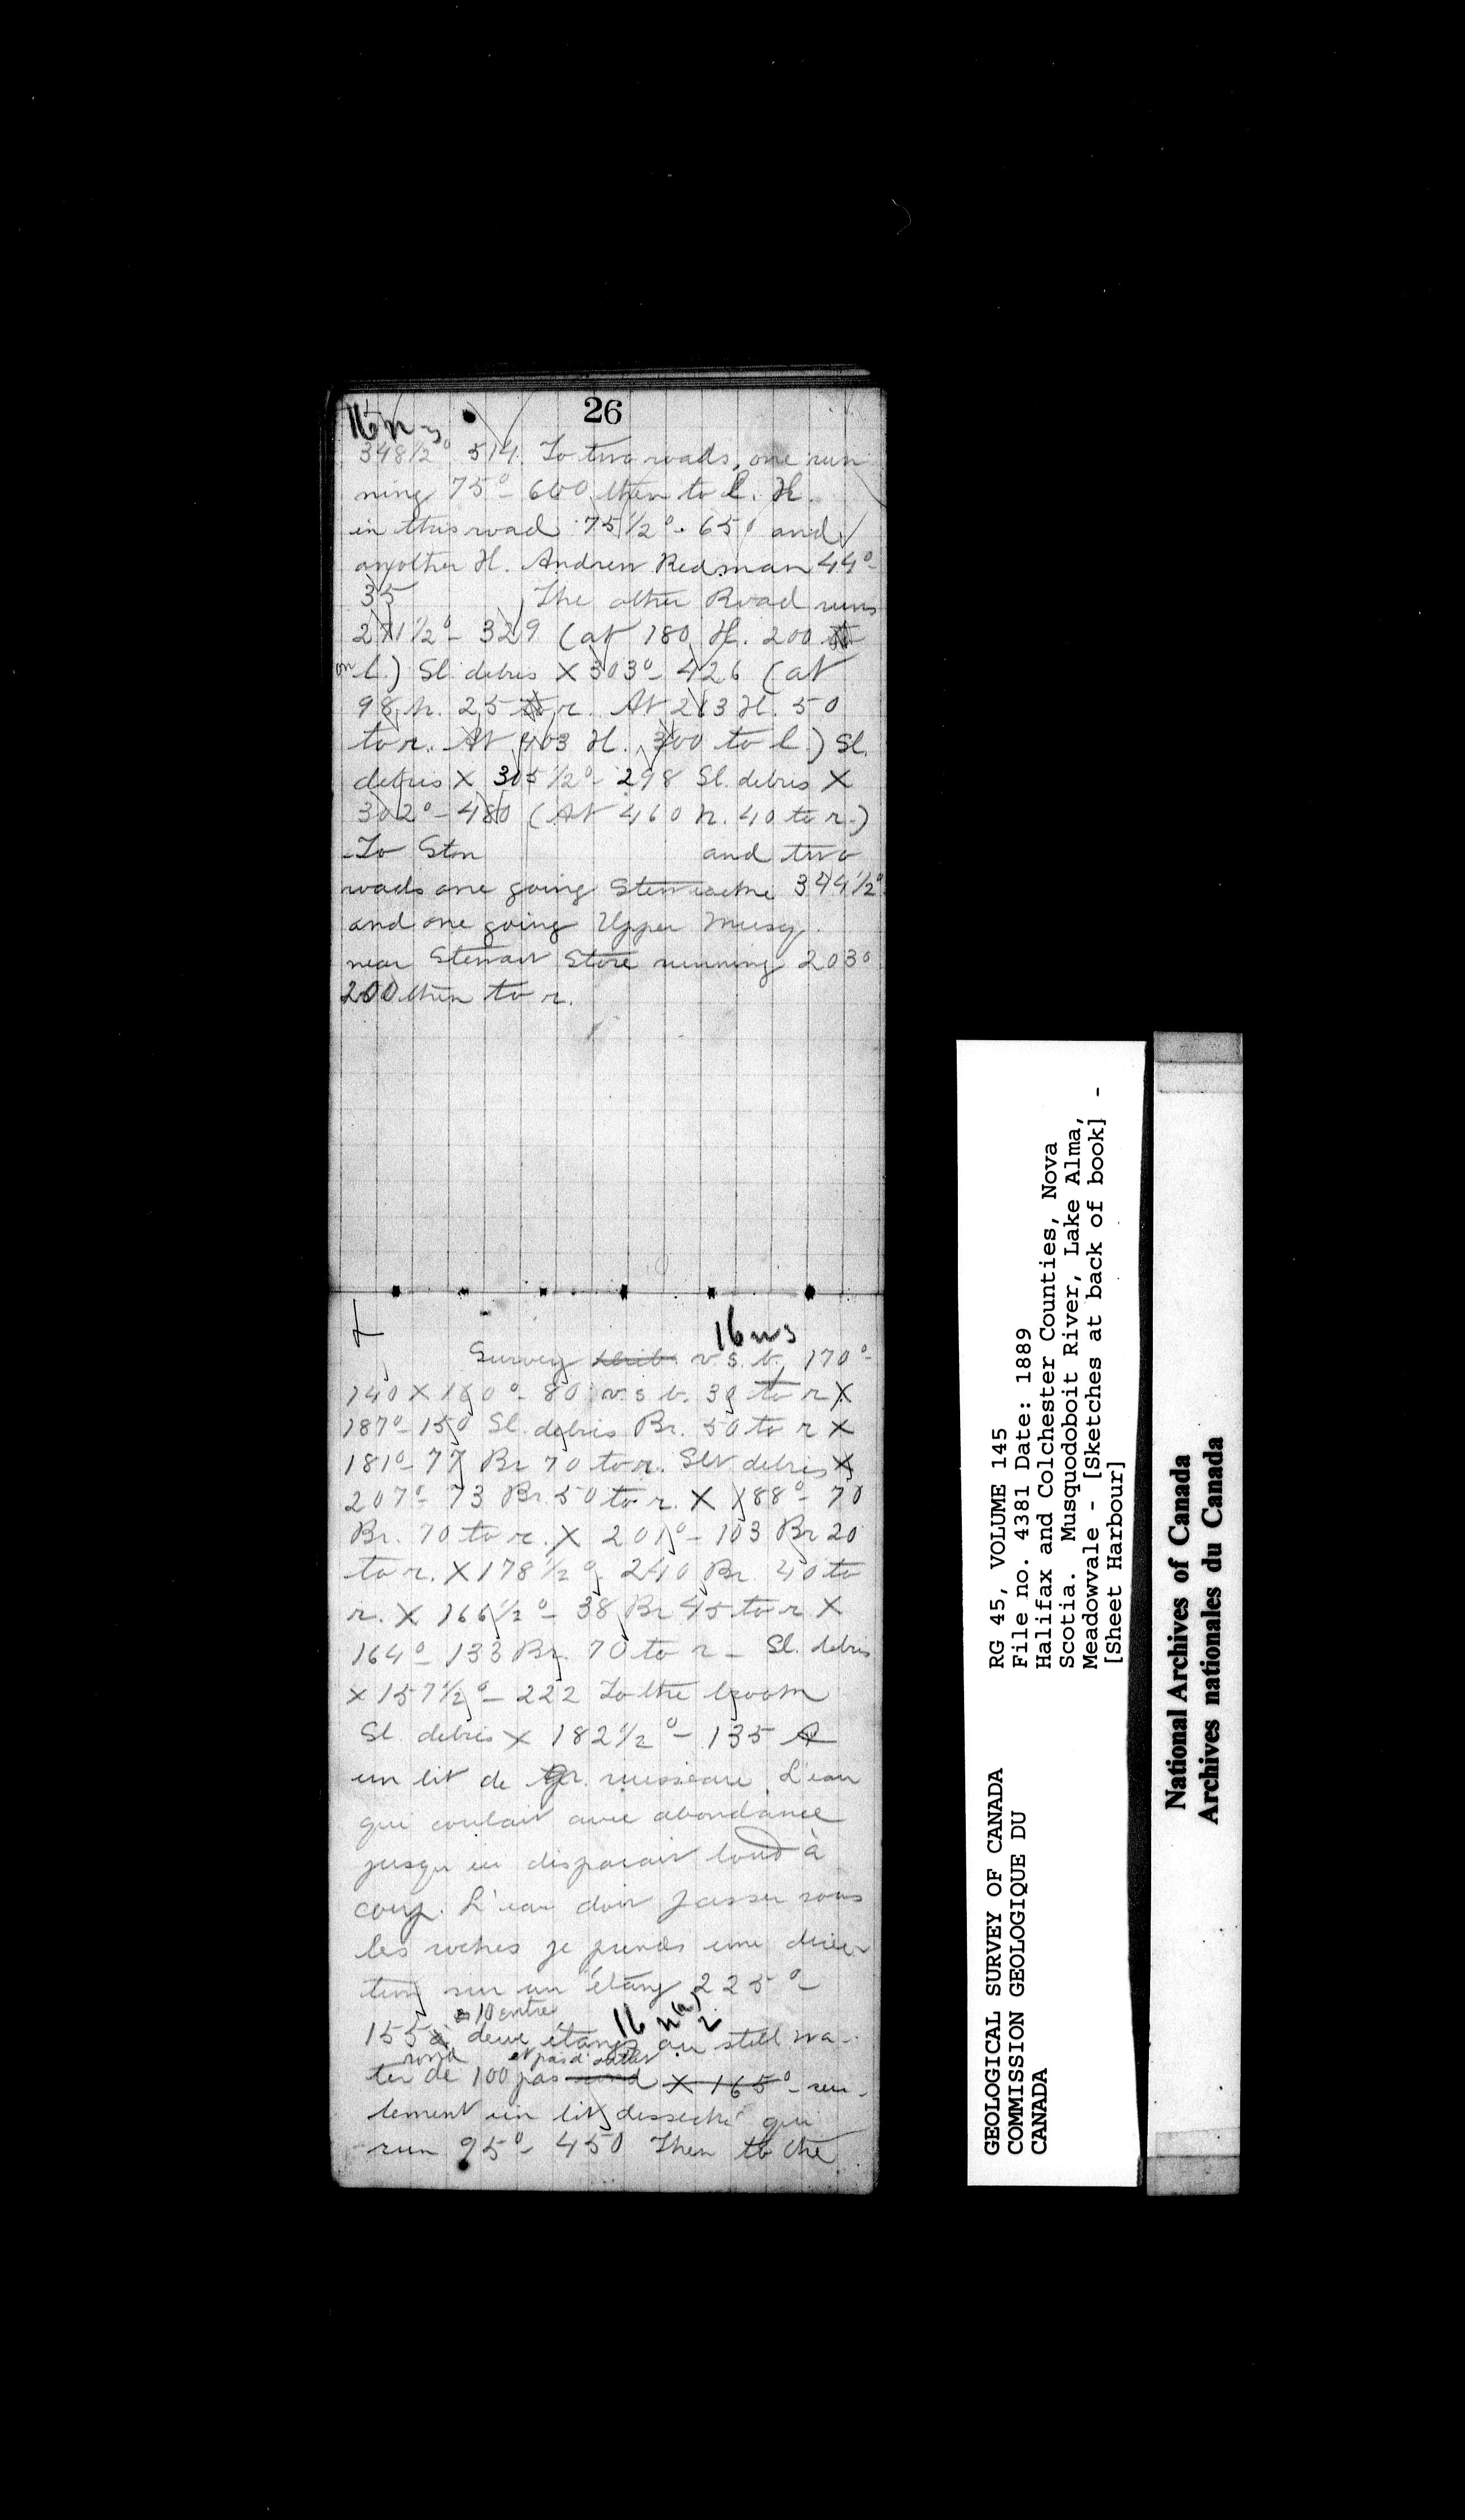 26
16 n 3
348 1/2° 514. To two roads, one run
ning 75° - 600 then to l. H.
in this road 75 1/2° - 650 and
another H. Andrew Redman 44° -
35 The other Road runs
271 1/2° - 329 (at 180 H. 200
on l.) Sl. debris X 303° - 426 (at
98 h. 25 to r. At 213 H. 50
to r. At 403 H. 300 to l.) Sl.
debris X 305 1/2° - 298 Sl. debris X
302° - 480 (At 460 h. 40 to r.)
To Stn and two
roads one going Stewiacke 344 1/2°
and one going Upper Musq.
near Stewart Store running 203°
200 then to r.
16 w 3
Survey v. s. b. 170° -
140 X 160° - 80 v. s. b. 30 to r X
187° - 150 Sl. debris Br. 50 to r X
181° - 77 Br 70 to r. Slt debris X
207° - 73 Br. 50 to r. X 188° - 70
Br. 70 to r. X 201° - 103 Br 20
to r. X 178 1/2° - 240 Br. 40 to
r. X 166 1/2° - 38 Br 45 to r X
164° - 133 Br. 70 to r - Sl. debris
X 157 1/2° - 222 To the brook
Sl. debris X 182 1/2° - 135 A
un lit de Gr. ruisseau. L'eau
qui coulait avec abondance
jusqu'ici disparait tout à
coup. L'eau doit passer sous
les roches je prends une direc
tion sur un étang 225° -
10 entre
16 n (a) 2
155 à deux étangs ou still wa-
rond et pas d'outlet
ter de 100 pas rond X 165° - seu-
lement un lit desseché qui
run 95° - 450 Then to the
RG 45, VOLUME 145
File no. 4381 Date: 1889
Halifax and Colchester Counties, Nova
Scotia. Musquodoboit River, Lake Alma,
Meadowvale - [Sketches at back of book] -
[Sheet Harbour]
GEOLOGICAL SURVEY OF CANADA
COMMISSION GEOLOGIQUE DU
CANADA
National Archives of Canada
Archives nationales du Canada